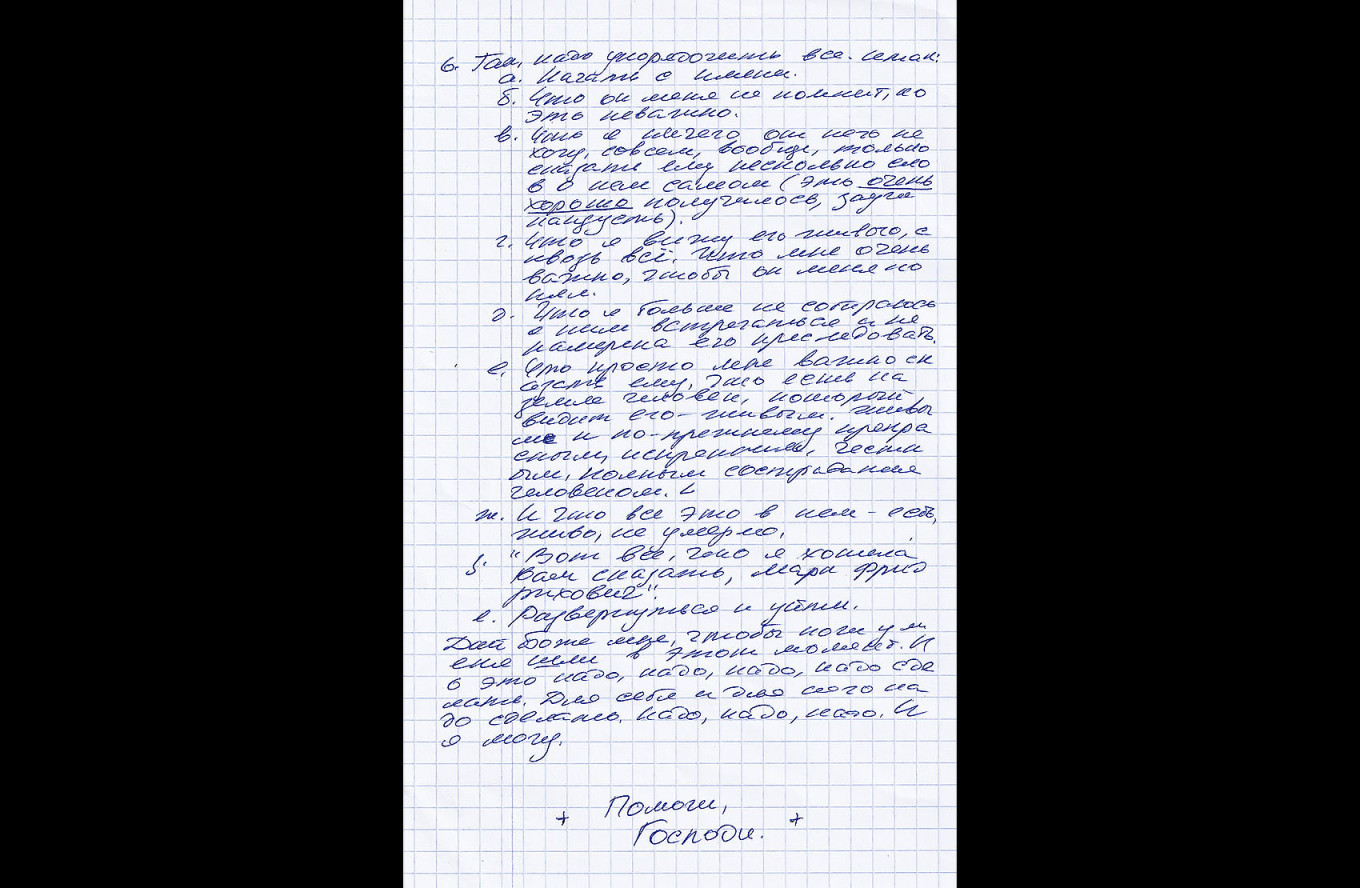 6. Так, надо упорядочить все. Итак:
а. Начать с имени.
б. Что он меня не помнит, но
это неважно.
в. Что я ничего от него не
хочу, совсем, вообще, только
сказать ему несколько сло
в о нем самом (это очень
хорошо получилось, заучи
наизусть).
г. Что я вижу его живого, с
квозь всё. Что мне очень
важно, чтобы он меня по
нял.
д. Что я больше не собираюсь
с ним встречаться и не
намерена его преследовать.
е. Что просто мне важно ск
азать ему, что есть на
земле человек, который
видит его - живым. Живы
м и по-прежнему прекра
сным, искренним, честн
ым, полным сострадания
человеком.
ж. И что все это в нем - есть,
живо, не умерло.
з. "Вот всё, что я хотела
Вам сказать, Марк Фрид
рихович".
е. Развернуться и уйти.
Дай Боже мне, чтобы ноги у м
еня шли в этот момент. И
б это надо, надо, надо, надо сде
лать. Для себя и для него на
до сделать. Надо, надо, надо. И
я могу.
+ Помоги, +
Господи.